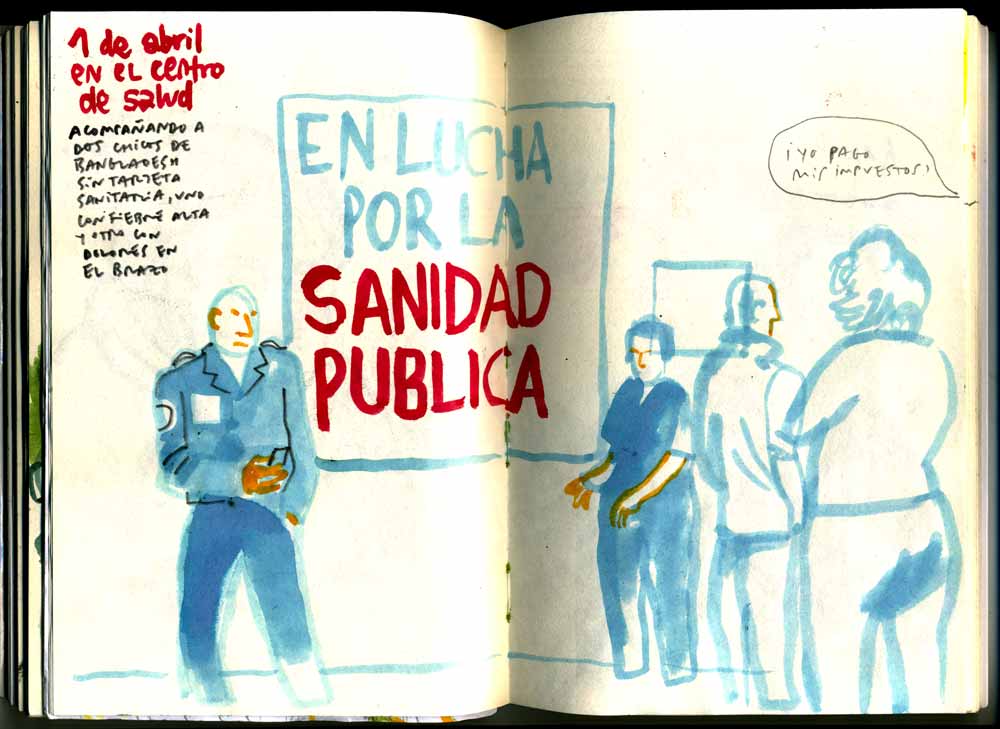 1 de abril
EN EL CENTRO
de salud
ACOMPAÑANDO A
DOS CHICOS DE
BANGLADESH
SIN TARJETA
SANITARIA, UNO
CON FIEBRE ALTA
Y OTRO CON
DOLORES EN
EL BRAZO
EN LUCHA
POR LA
SANIDAD
PUBLICA
¡YO PAGO
MIS IMPUESTOS!